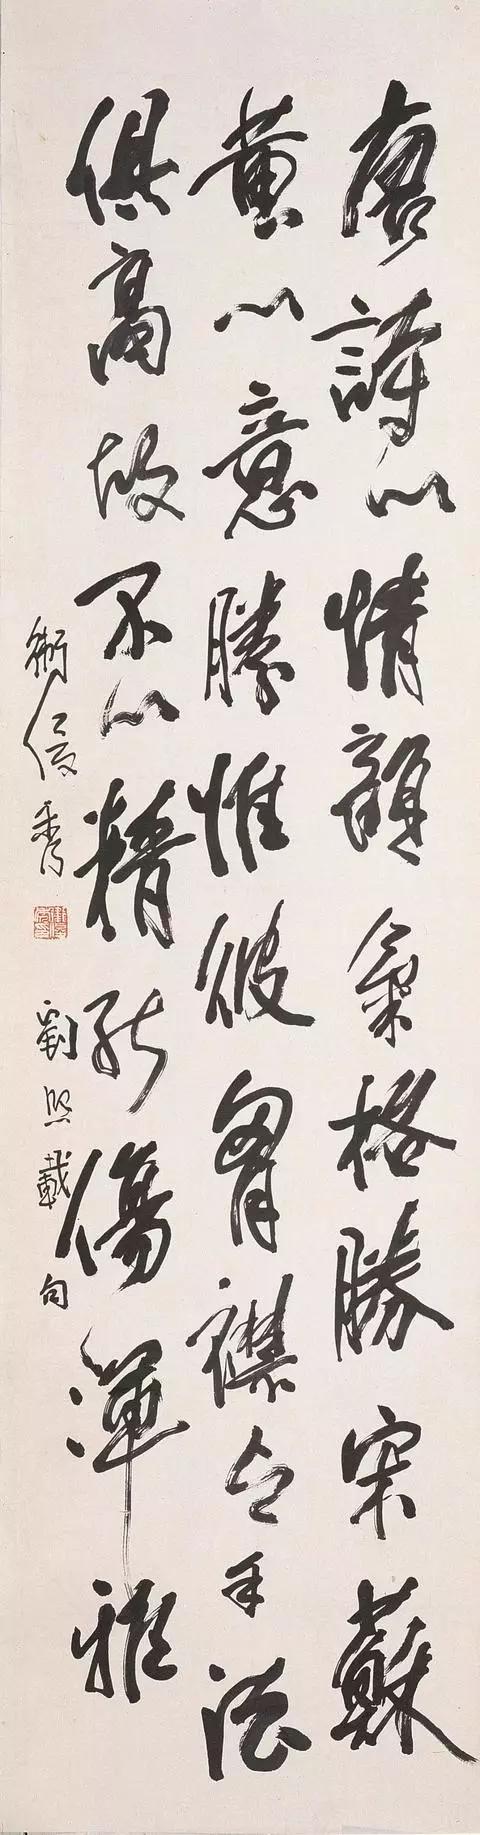 唐詩以情韻氣格勝宋蘇
黃以意勝惟彼胷襟与手法
俱高故不以精能傷渾雅
劉熙載句
衛俊秀